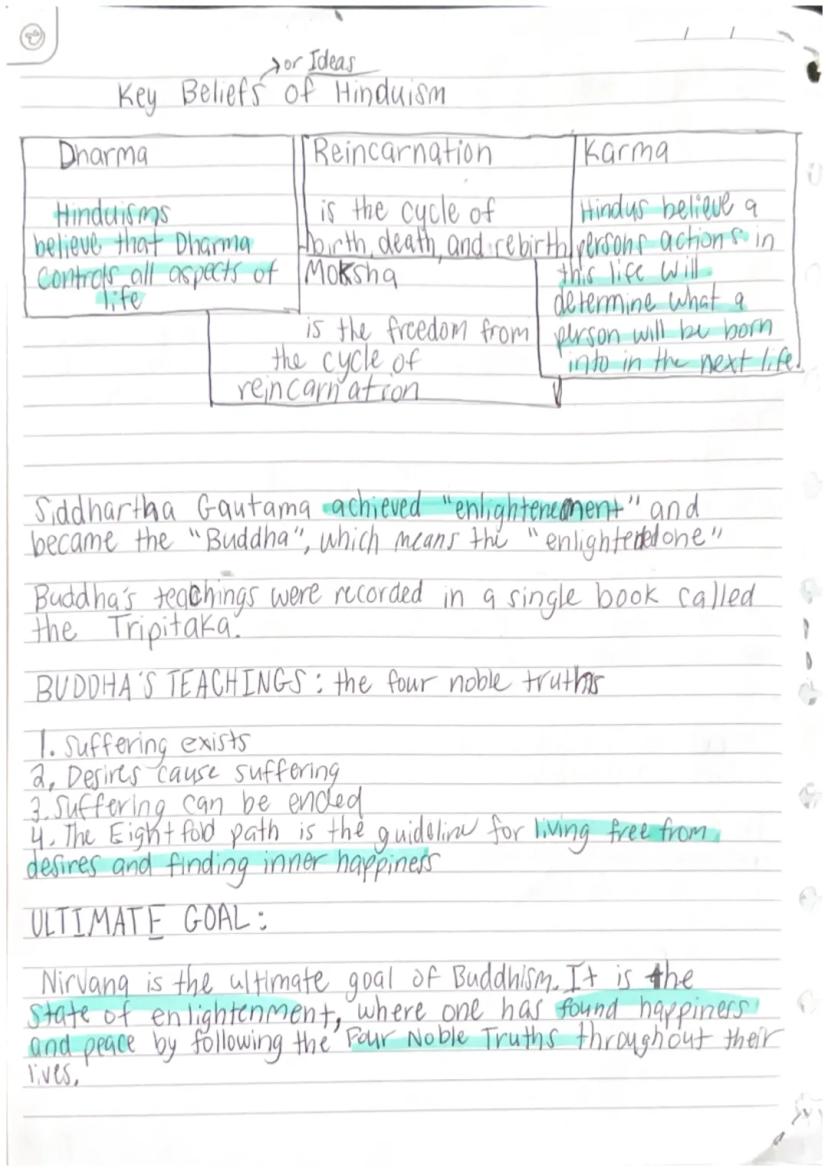 or Ideas
Key Beliefs of Hinduism
Dharma
Hinduisms
believe that Dharma
controls all aspects of
life
Reincarnation
is the cycle of
birth, death, and rebirth
Moksha
is the freedom from
the cycle of
reincarnation
Karma
Hindus believe a
persons actions in
this life will
determine what a
person will be born
into in the next life.
Siddhartha Gautama achieved "enlightenement" and
became the "Buddha", which means the "enlightened one"
Buddha's teachings were recorded in a single book called
the Tripitaka.
BUDDHA'S TEACHINGS: the four noble truths
1. Suffering exists
2, Desires cause suffering
3. Suffering can be ended
4. The Eight fold path is the guideline for living free from
desires and finding inner happiness
ULTIMATE GOAL:
Nirvana is the ultimate goal of Buddhism. It is the
State of enlightenment, where one has found happiness
and peace by following the Four Noble Truths throughout their
lives.